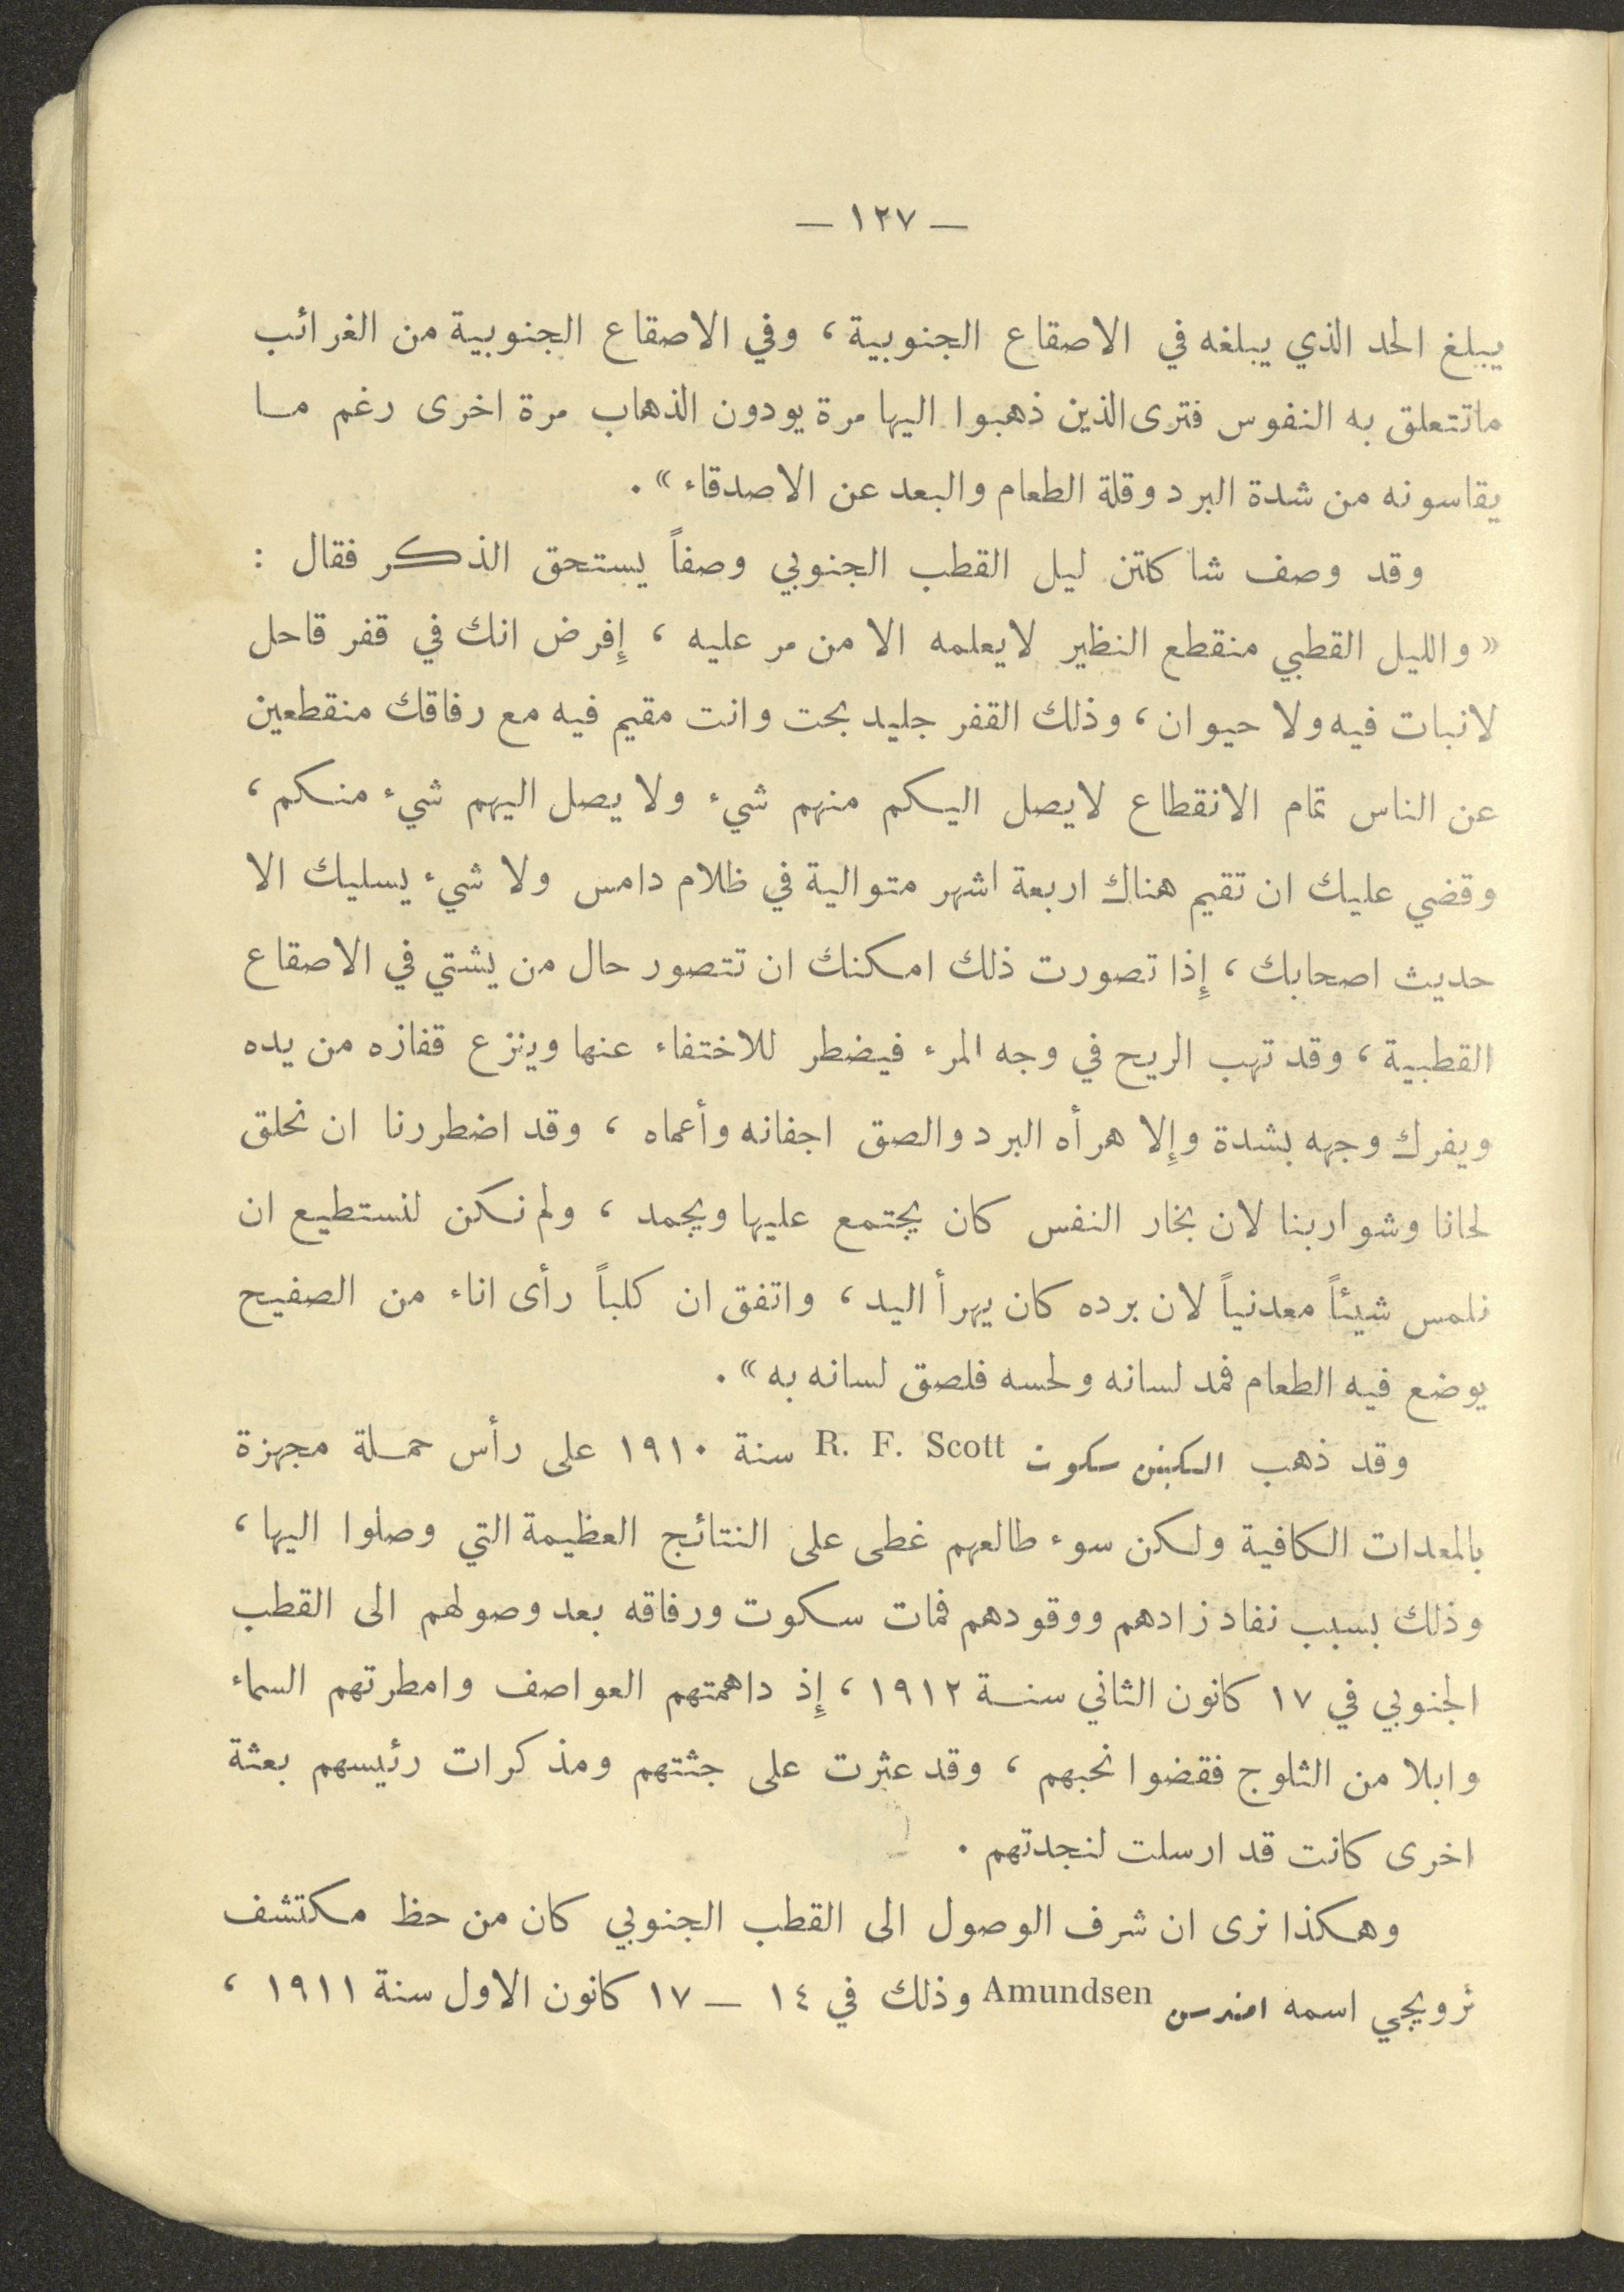 — ١٢٧ —
يبلغ الحد الذي يبلغه في الاصقاع الجنوبية ، وفي الاصقاع الجنوبية من الغرائب
ماتتعلق به النفوس فترى الذين ذهبوا اليها مرة يودون الذهاب مرة اخرى رغم ما
يقاسونه من شدة البرد وقلة الطعام والبعد عن الاصدقاء » .
وقد وصف شاكلتن ليل القطب الجنوبي وصفاً يستحق الذكر فقال :
« والليل القطبي منقطع النظير لايعلمه الا من مر عليه ، إِفرض انك في قفر قاحل
لانبات فيه ولا حيوان ، وذلك القفر جليد بحت وانت مقيم فيه مع رفاقك منقطعين
عن الناس تمام الانقطاع لايصل اليكم منهم شيء ولا يصل اليهم شيء منكم ،
وقضي عليك ان تقيم هناك اربعة اشهر متوالية في ظلام دامس ولا شيء يسليك الا
حديث اصحابك ، إِذا تصورت ذلك امكنك ان تتصور حال من يشتي في الاصقاع
القطبية ، وقد تهب الريح في وجه المرء فيضطر للاختفاء عنها وينزع قفازه من يده
ويفرك وجهه بشدة وإِلا هرأه البرد والصق اجفانه وأعماه ، وقد اضطررنا ان نحلق
لحانا وشواربنا لان بخار النفس كان يجتمع عليها ويجمد ، ولم نكن لنستطيع ان
نلمس شيئاً معدنياً لان برده كان يهرأ اليد ، واتفق ان كلباً رأى اناء من الصفيح
يوضع فيه الطعام فمد لسانه ولحسه فلصق لسانه به » .
وقد ذهب الكبتن سكوت R. F. Scott سنة ١٩١٠ على رأس حملة مجهزة
بالمعدات الكافية ولكن سوء طالعهم غطى على النتائج العظيمة التي وصلوا اليها ،
وذلك بسبب نفاد زادهم ووقودهم فمات سكوت ورفاقه بعد وصولهم الى القطب
الجنوبي في ١٧ كانون الثاني سنة ١٩١٢ ، إِذ داهمتهم العواصف وامطرتهم السماء
وابلا من الثلوج فقضوا نحبهم ، وقد عثرت على جثتهم ومذكرات رئيسهم بعثة
اخرى كانت قد ارسلت لنجدتهم .
وهكذا نرى ان شرف الوصول الى القطب الجنوبي كان من حظ مكتشف
نرويجي اسمه امندسن Amundsen وذلك في ١٤ — ١٧ كانون الاول سنة ١٩١١ ،